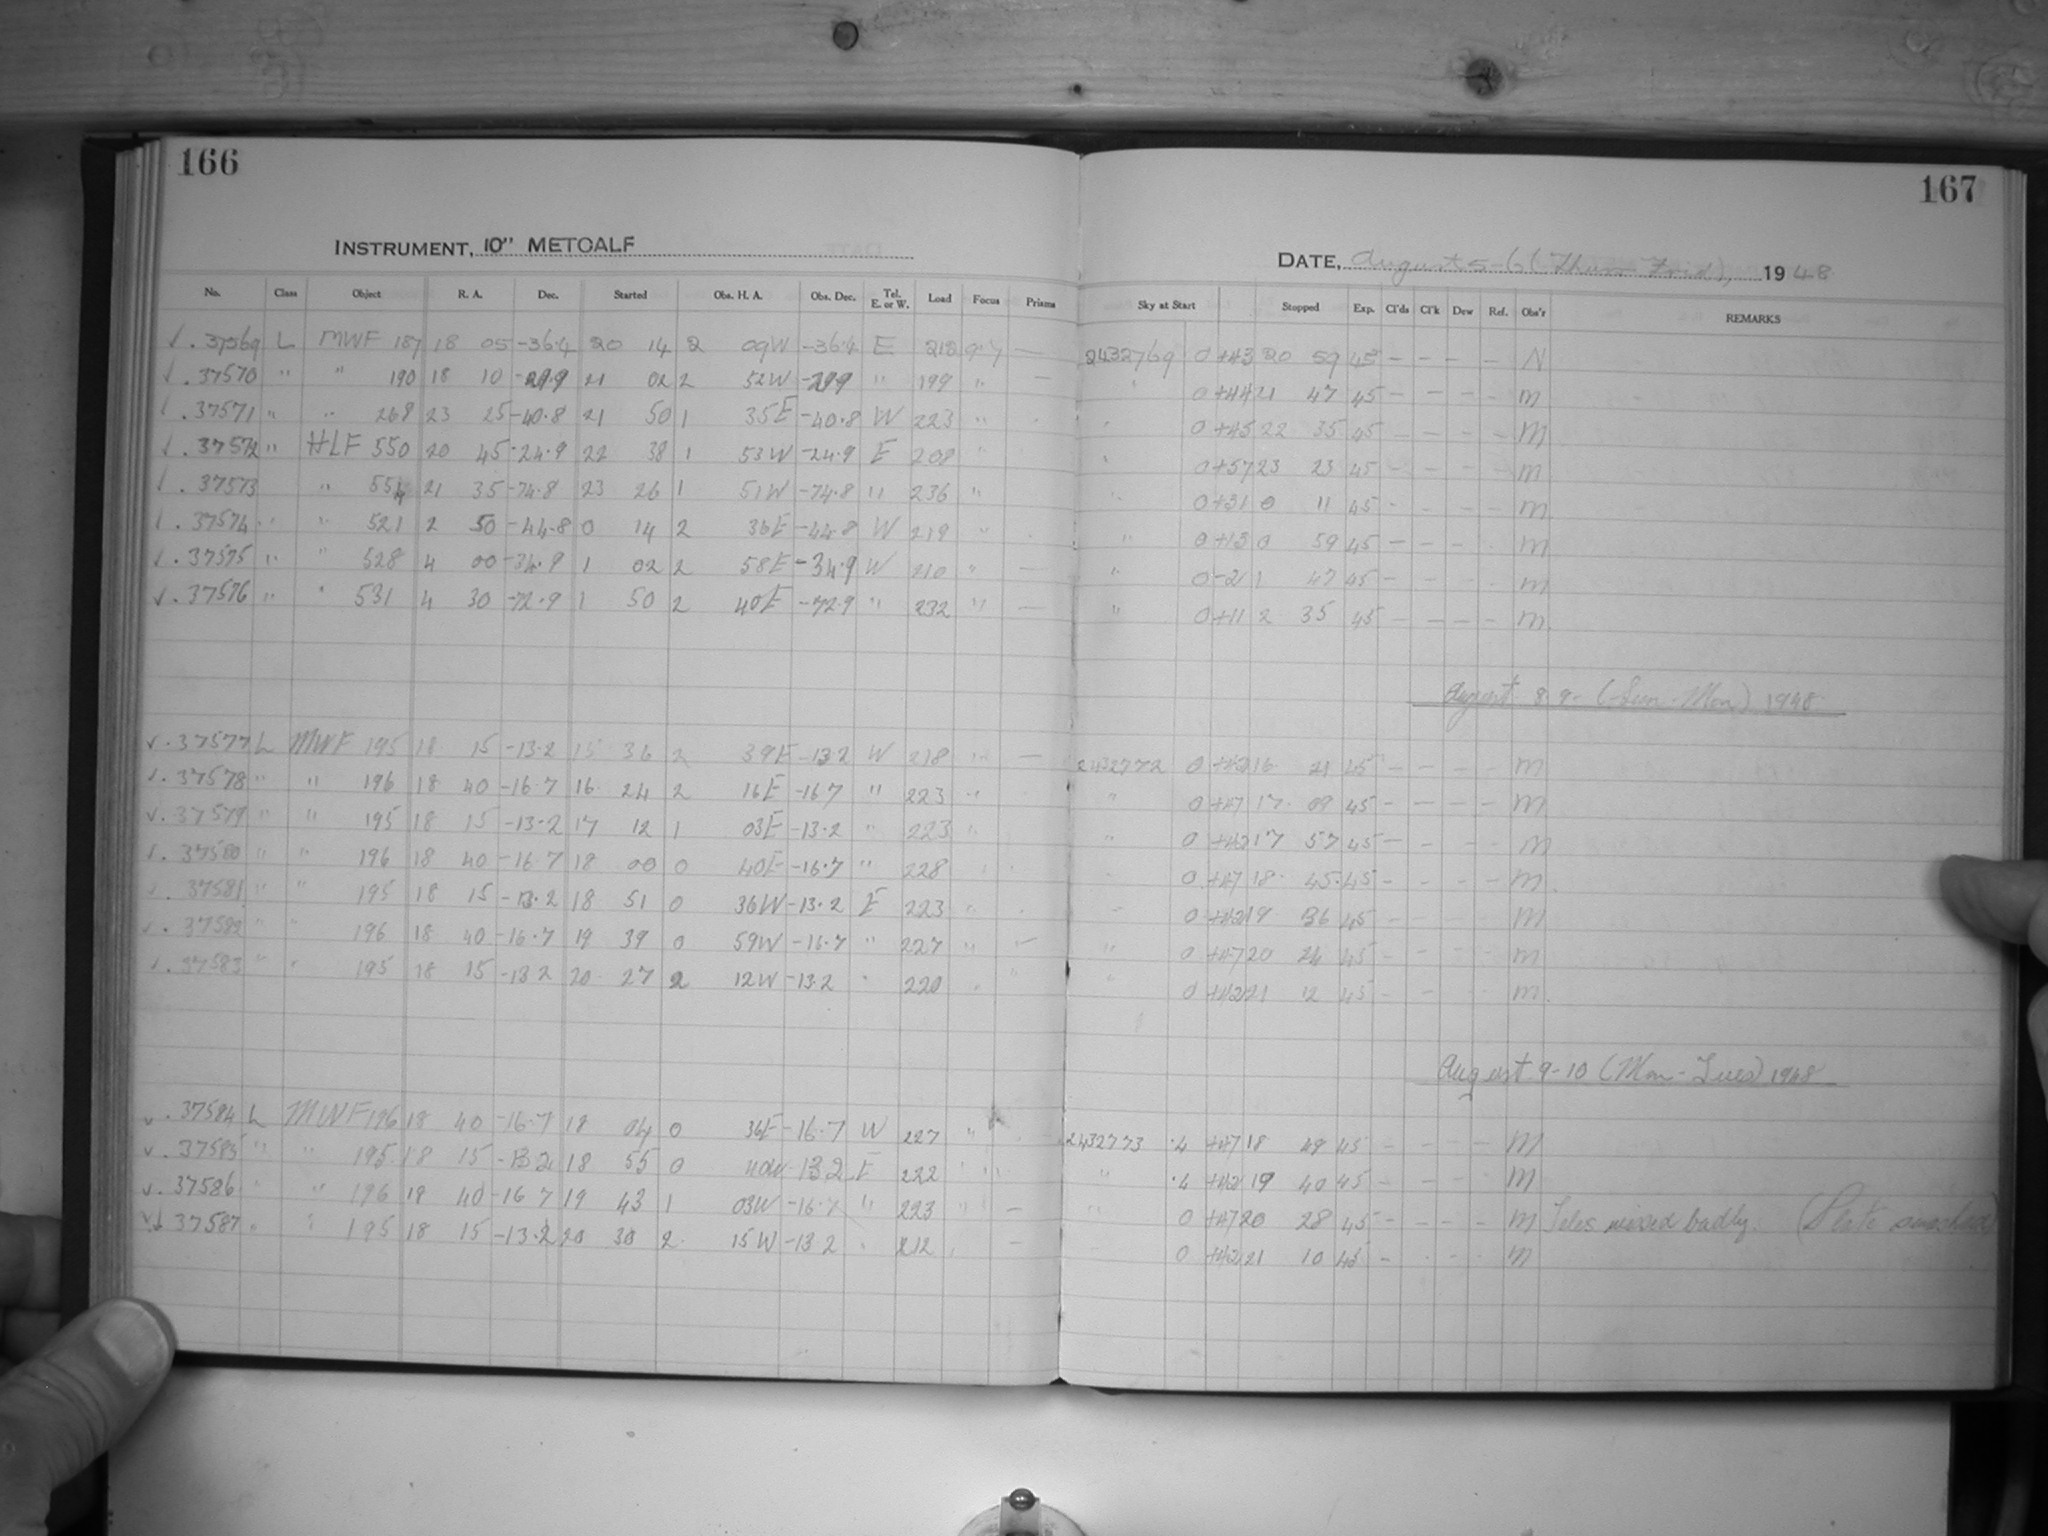 166
INSTRUMENT, 10" METCALF
No. Class Object R. A. Dec. Started Obs. H. A. Obs. Dec. Tel. E. or W. Load Focus Prisms
√ . 37569 L MWF 187 18 05 -36.4 20 14 2 09W -36.4 E 212 9.7 —
√ . 37570 " " 190 18 10 -29.9 21 02 2 52W -29.9 " 199 " —
√ . 37571 " " 268 23 25 -40.8 21 50 1 35E -40.8 W 223 "
√ . 37572 " HLF 550 20 45 -24.9 22 38 1 53W -24.9 E 208 "
√ . 37573 " 554 21 35 -74.8 23 26 1 51W -74.8 " 236 "
√ . 37574 " " 521 2 50 -44.8 0 14 2 36E -44.8 W 219 "
√ . 37575 " " 528 4 00 -34.9 1 02 2 58E -34.9 W 210 " —
√ . 37576 " " 531 4 30 -72.9 1 50 2 40E -72.9 " 232 " —
√ . 37577 L MWF 195 18 15 -13.2 15 36 2 39E -13.2 W 218 " —
√ . 37578 " " 196 18 40 -16.7 16 24 2 16E -16.7 " 223 "
√ . 37579 " " 195 18 15 -13.2 17 12 1 03E -13.2 " 223 "
√ . 37580 " " 196 18 40 -16.7 18 00 0 40E -16.7 " 228
√ . 37581 " " 195 18 15 -13.2 18 51 0 36W -13.2 E 223 "
√ . 37582 " " 196 18 40 -16.7 19 39 0 59W -16.7 " 227 " —
√ . 37583 " " 195 18 15 -13.2 20 27 2 12W -13.2 " 220 "
√ . 37584 L MWF 196 18 40 -16.7 18 04 0 36E -16.7 W 227 "
√ . 37585 " " 195 18 15 -13.2 18 55 0 40W -13.2 E 222 "
√ . 37586 " " 196 18 40 -16.7 19 43 1 03W -16.7 " 223 " —
√ 37587 " " 195 18 15 -13.2 20 30 2 15W -13.2 " 212 —
167
DATE, August 5-6 (Thurs Frid), 1948
Sky at Start Stopped Exp. Cl'ds Cl'k Dew Ref. Obs'r REMARKS
2432769 0 +43 20 59 45 — — — — N
" 0 +44 21 47 45 — — — — M
" 0 +45 22 35 45 — — — — M
" 0 +57 23 23 45 — — — — M
" 0 +31 0 11 45 — — — — M
" 0 +13 0 59 45 — — — M
" 0 -2 1 47 45 — — — — M
" 0 +11 2 35 45 — — — — M
August 8-9- (Sun-Mon) 1948
2432772 0 +42 16 21 45 — — — — M
" 0 +47 17 09 45 — — — — M
" 0 +42 17 57 45 — — — M
" 0 +47 18 45 45 — — — — M
" 0 +42 19 36 45 — — — M
" 0 +47 20 24 45 — — M
" 0 +42 21 12 45 — — M
August 9-10 (Mon-Tues) 1948
2432773 .4 +47 18 49 45 — — — — M
" .4 +42 19 40 45 — — — M
" 0 +47 20 28 45 — — — — M Teles missed badly. (Plate smashed)
0 +42 21 10 45 — M